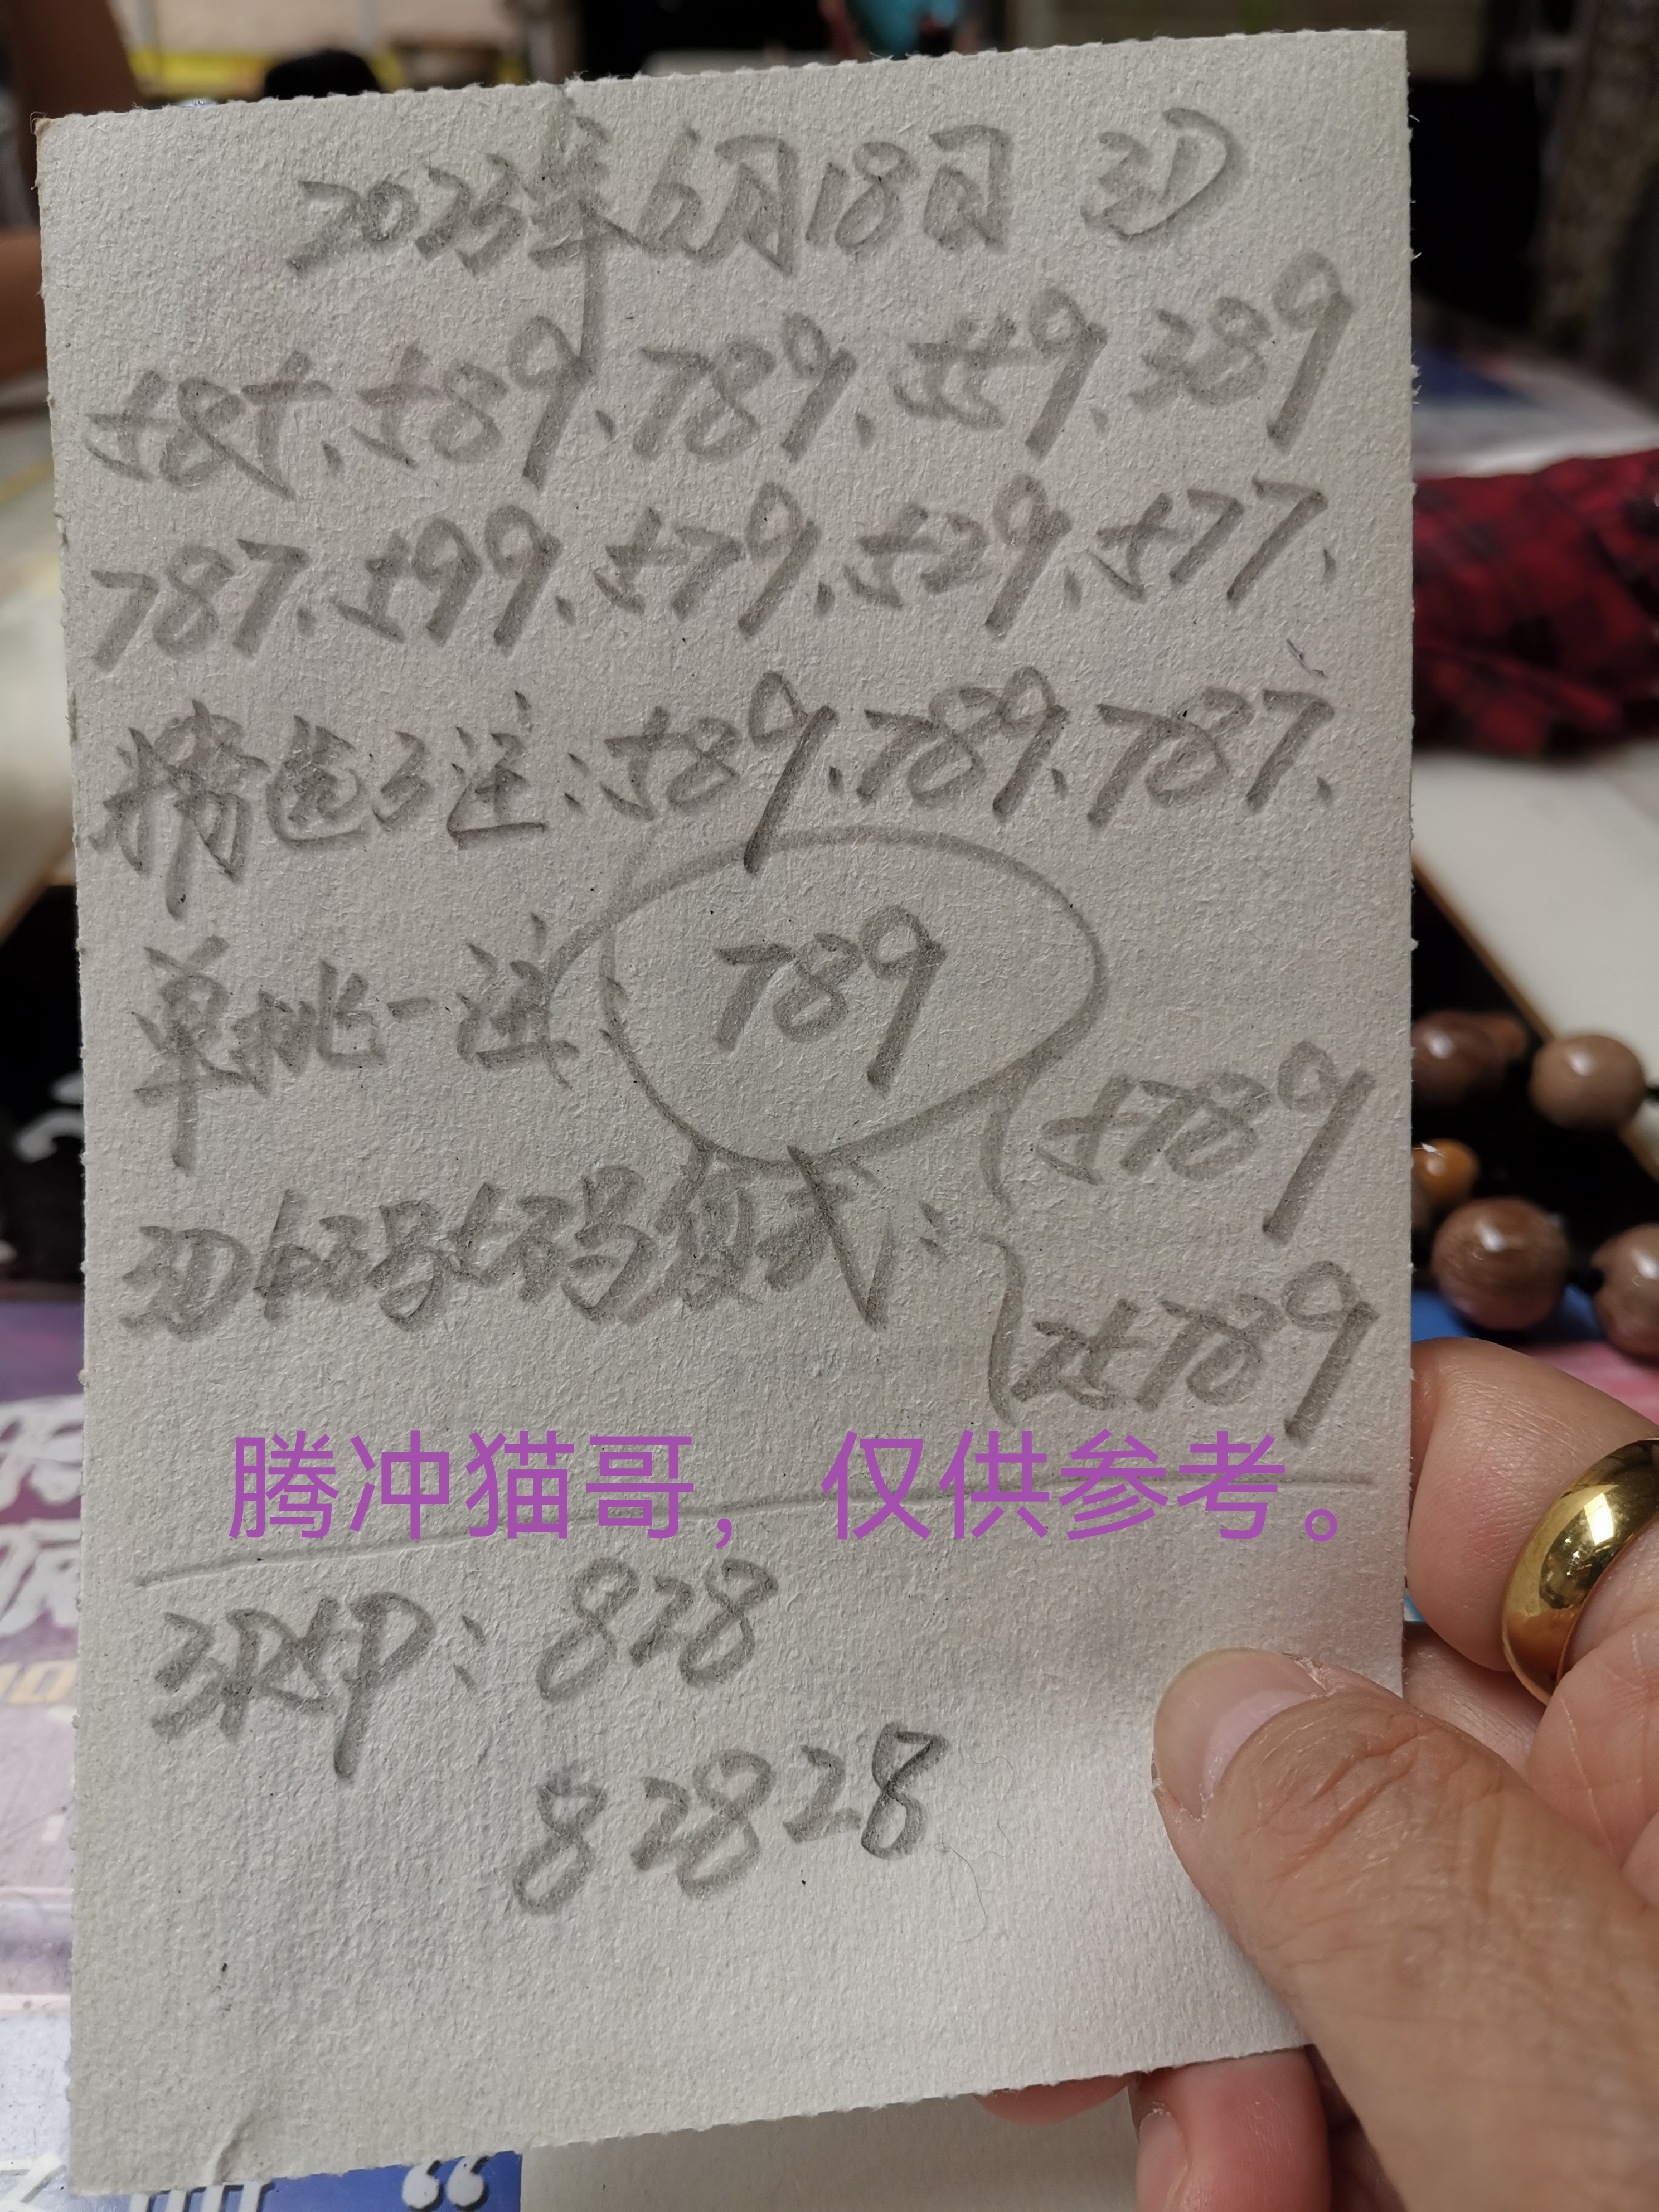 2023年6月18日 3D
585、589、789、559、389
787、599、579、529、577、
精选3注：589、789、787、
单挑一注：789
5789
3D组码复式：
25789
腾冲猫哥，仅供参考。
3P5P：828
82828
“